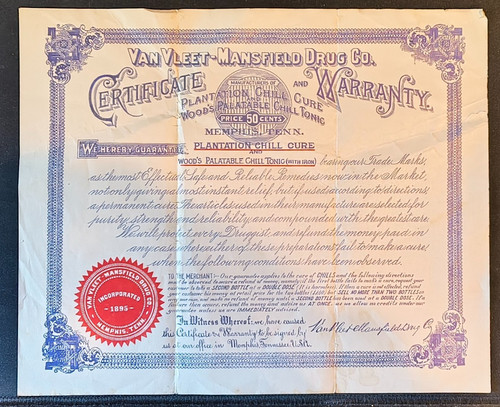 VAN VLEET-MANSFIELD DRUG CO.
CERTIFICATE AND WARRANTY.
MANUFACTURERS OF
PLANTATION CHILL CURE
AND
WOOD'S PALATABLE CHILL TONIC
PRICE 50 CENTS
MEMPHIS, TENN.
WE HEREBY GUARANTEE
PLANTATION CHILL CURE
AND
WOOD'S PALATABLE CHILL TONIC (WITH IRON)
bearing our Trade Marks,
as the most Effectual, Safe and Reliable Remedies now in the Market,
not only giving almost instant relief, but if used according to directions,
a permanent cure. The articles used in their manufacture are selected for
purity, strength and reliability and compounded with the greatest care.
We will protect every Druggist and refund the money paid, in
any case where either of these preparations fail to make a cure,
when the following conditions have been observed.
TO THE MERCHANT:- Our guarantee applies to the cure of CHILLS and the following directions
must be observed to insure a refund of money, namely: If the first bottle fails to make a cure, request your
customer to take a SECOND BOTTLE at a DOUBLE DOSE. If a cure is not effected, refund
SELL NO MORE THAN TWO BOTTLES
SECOND BOTTLE has been used at a DOUBLE DOSE.
refund the money and advise us AT ONCE, as we allow no credits under our
guarantee unless we are IMMEDIATELY ADVISED.
In Witness Whereof, we have caused
this Certificate & Warranty to be signed by
us at our office in Memphis, Tennessee, U.S.A.
Van Vleet-Mansfield Drug Co.
VAN VLEET-MANSFIELD DRUG CO.
INCORPORATED
-1895-
MEMPHIS, TENN.